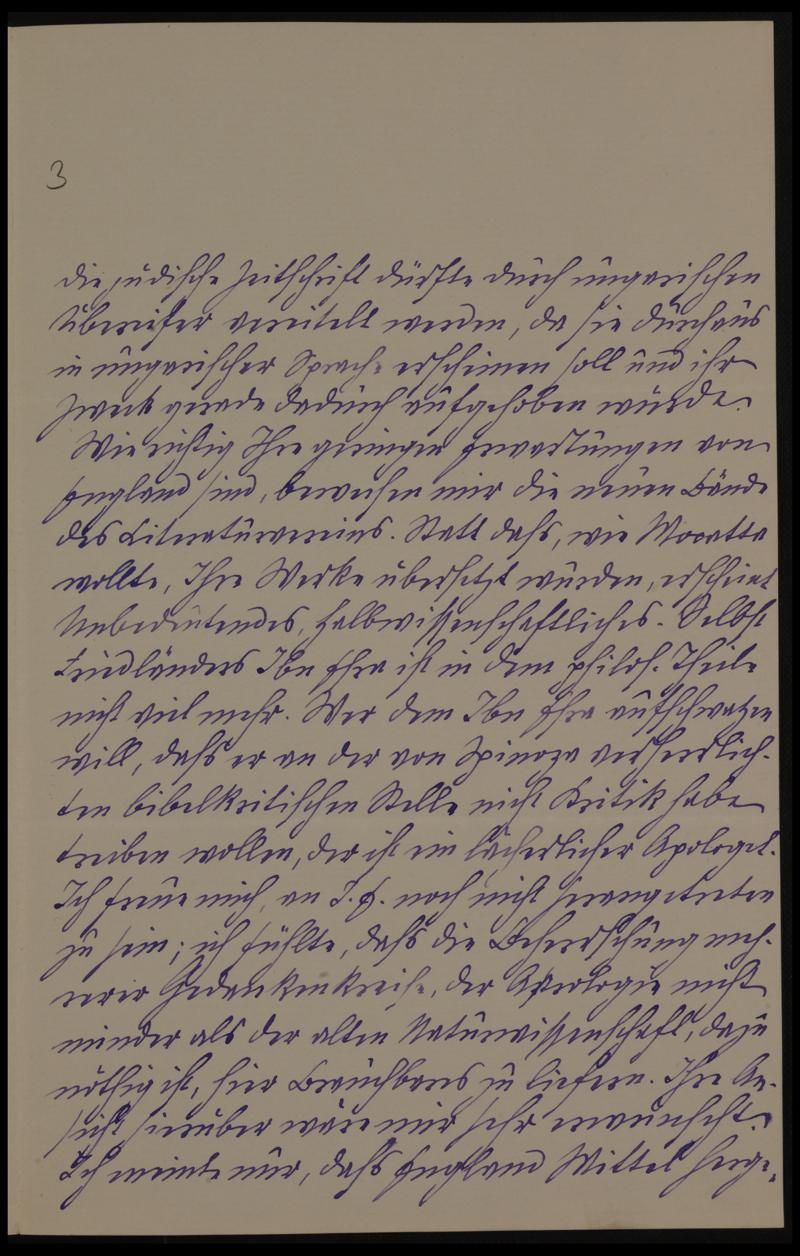 3
die jüdische Zeitschrift dürfte durch ungarischen
Übereifer vereitelt werden, da sie durchaus
in ungarischer Sprache erscheinen soll und ihr
Zweck gerade dadurch aufgehoben würde.
Wie richtig Ihre geringen Erwartungen von
England sind, beweisen mir die neuen Bände
des Literaturvereins. Statt dafs, wie Mocatta
wollte, Ihre Werke übersetzt würden, erscheint
Unbedeutendes, Halbwissenschaftliches. Selbst
Friedländers Ibn Esra ist in dem philos. Theile
nicht viel mehr. Wer dem Ibn Esra aufschwatzen
will, dafs er an der von Spinoza verherrlich-
ten bibelkritischen Stelle nicht Kritik habe
treiben wollen, der ist ein lächerlicher Apologet.
Ich freue mich, an I. E. noch nicht herangetreten
zu sein; ich fühlte, dafs die Beherrschung meh-
rerer Gedankenkreise, der Astrologie nicht
minder als der alten Naturwissenschaft, dazu
nöthig ist, hier Brauchbares zu liefern. Ihre An-
sicht hierüber wäre mir sehr erwünscht.
Ich meinte nur, dafs England Mittel herge-